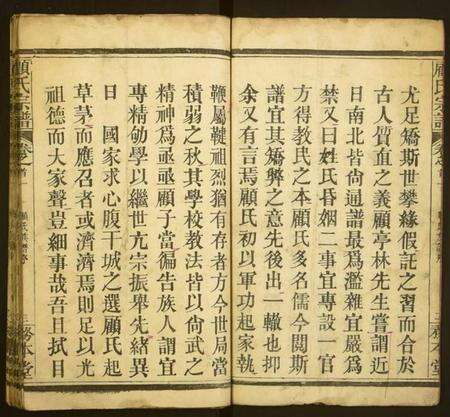 顧氏宗譜
尤足矯斯世攀緣假託之習而合於
古人質直之義顧亭林先生嘗謂近
日南北皆尚通譜最爲濫雜宜嚴爲
禁又曰姓氏昏姻二事宜專設一官
方得教民之本顧氏多名儒今閱斯
譜宜其矯弊之意先後出一轍也抑
余又有言焉顧氏初以軍功起家執
鞭屬鞬祖烈猶有存者方今世局當
積弱之秋其學校教法皆以尚武之
精神爲亟亟顧子當徧告族人謂宜
專精劬學以繼世亢宗振舉先緒異
日 國家求心腹干城之選顧氏起
草茅而應召者或濟濟焉則足以光
祖德而大家聲豈細事哉吾且拭目
顧氏宗譜
卷之首
務本堂